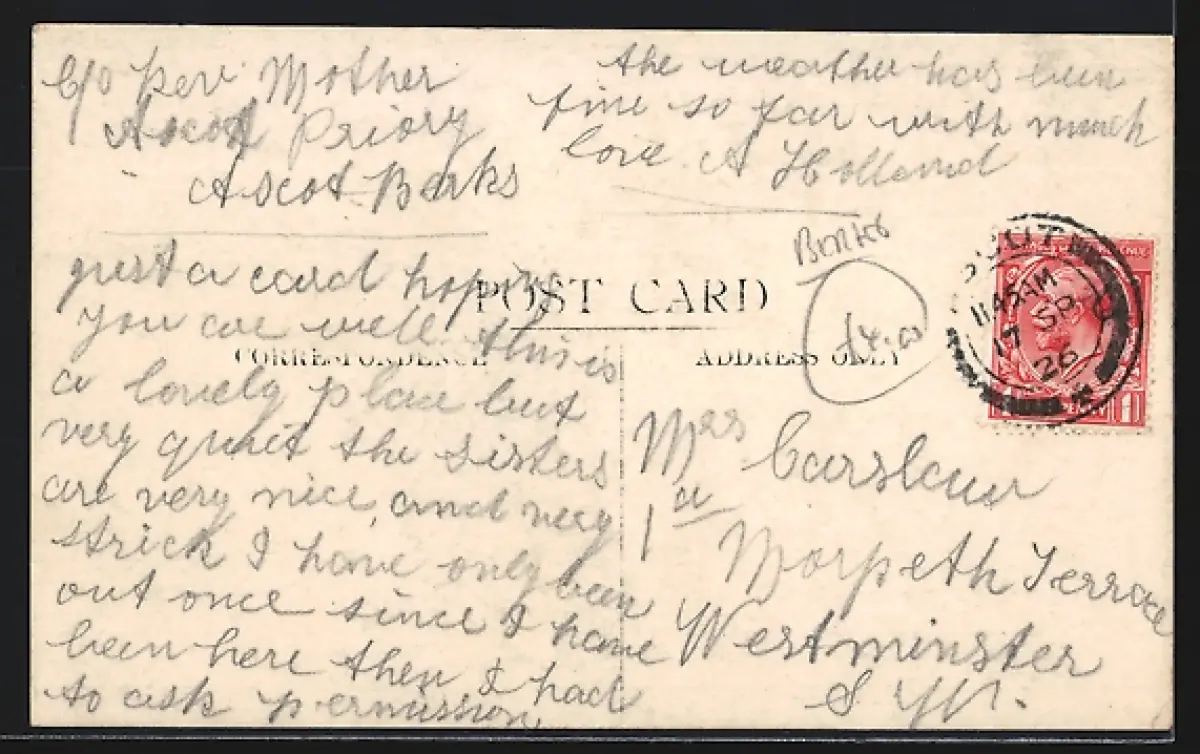 C/o Rev. Mother
Ascot Priory
Ascot Berks
just a card hoping
you are well this is
a lovely place but
very quiet the sisters
are very nice, and very
strick I have only been
out once since I have
been here then I had
to ask permission.
the weather has been
fine so far with much
love A Holland
POST CARD
CORRESPONDENCE
ADDRESS ONLY
Berks
£4.00
11 45 AM
17 SP
26
Mrs Carslaw
1a
Morpeth Terrace
Westminster
S W.